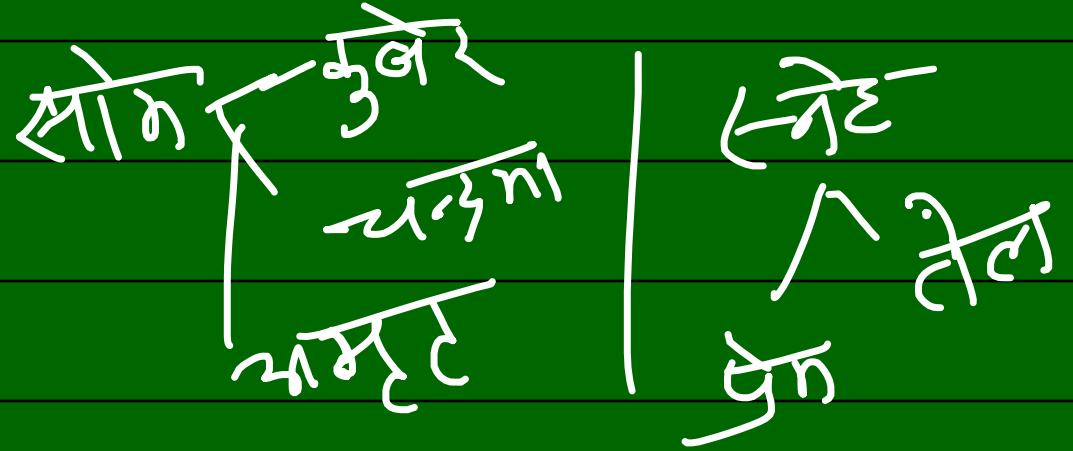 सोम कुबेर
चन्द्रमा
अमृत
स्नेह
तेल
प्रेम